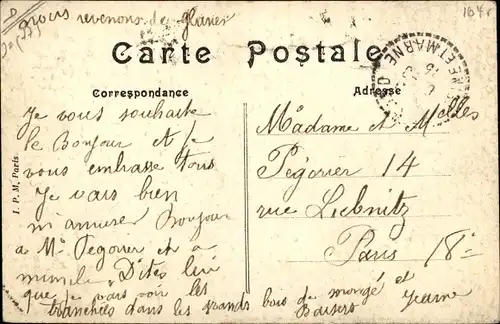 nous revenons de glaner
Carte Postale
Correspondance
Adresse
ET MARNE
I. P. M. Paris.
Je vous souhaite
le Bonjour et je
vous embrasse tous
Je vais bien
m'amuser Bonjour
a Mr Pegorier et a
Dites lui
que je vais voir les
tranchées dans les grands bois de et
Baisers Jeanne
Madame et Melles
Pégorier 14
rue Liebnitz
Paris 18e